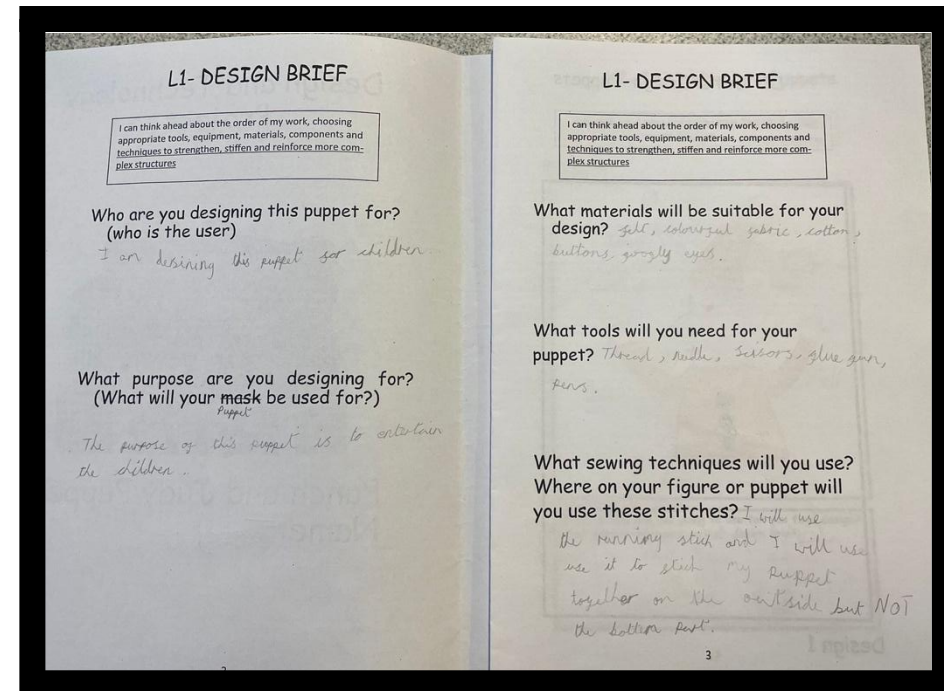 L1- DESIGN BRIEF
I can think ahead about the order of my work, choosing
appropriate tools, equipment, materials, components and
techniques to strengthen, stiffen and reinforce more com-
plex structures
Who are you designing this puppet for?
(who is the user)
I am desining this puppet for children
What purpose are you designing for?
(What will your mask be used for?)
Puppet
The purpose of this puppet is to entertain
the children.
L1- DESIGN BRIEF
I can think ahead about the order of my work, choosing
appropriate tools, equipment, materials, components and
techniques to strengthen, stiffen and reinforce more com-
plex structures
What materials will be suitable for your
design? felt, colourful fabric, cotton,
buttons, googly eyes.
What tools will you need for your
puppet? Thread, needle, scissors, glue gun,
pens.
What sewing techniques will you use?
Where on your figure or puppet will
you use these stitches? I will use
the running stich and I will use
use it to stich my puppet
together on the outside but NOT
the bottom part.
3
Design 1